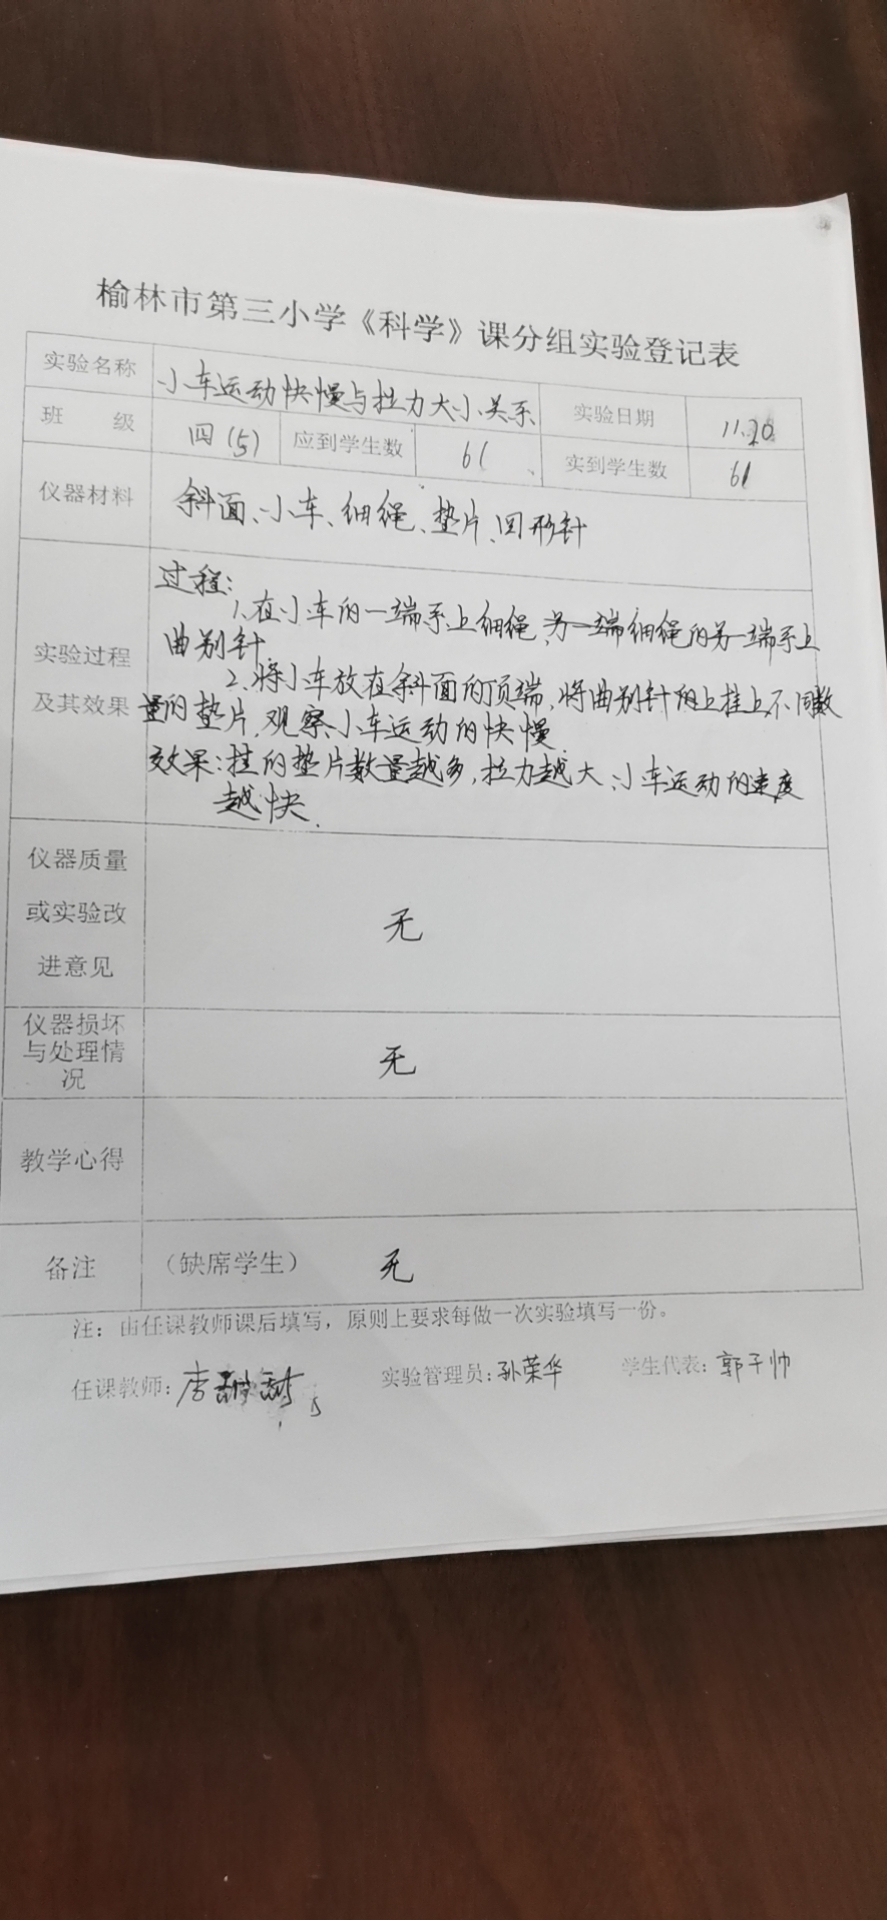 榆林市第三小学《科学》课分组实验登记表
实验名称 小车运动快慢与拉力大小关系 实验日期 11.20
班 级 四(5) 应到学生数 61 实到学生数 61
仪器材料 斜面、小车、细绳、垫片、回形针
过程:
1.在小车的一端系上细绳,另一端细绳的另一端系上
曲别针.
实验过程
及其效果
2.将小车放在斜面的顶端,将曲别针的上挂上不同数
量的垫片,观察小车运动的快慢
效果:挂的垫片数量越多,拉力越大,小车运动的速度
越快.
仪器质量
或实验改
进意见
无
仪器损坏
与处理情
况
无
教学心得
备注 (缺席学生) 无
注:由任课教师课后填写,原则上要求每做一次实验填写一份。
任课教师: 实验管理员:孙荣华 学生代表:郭子帅